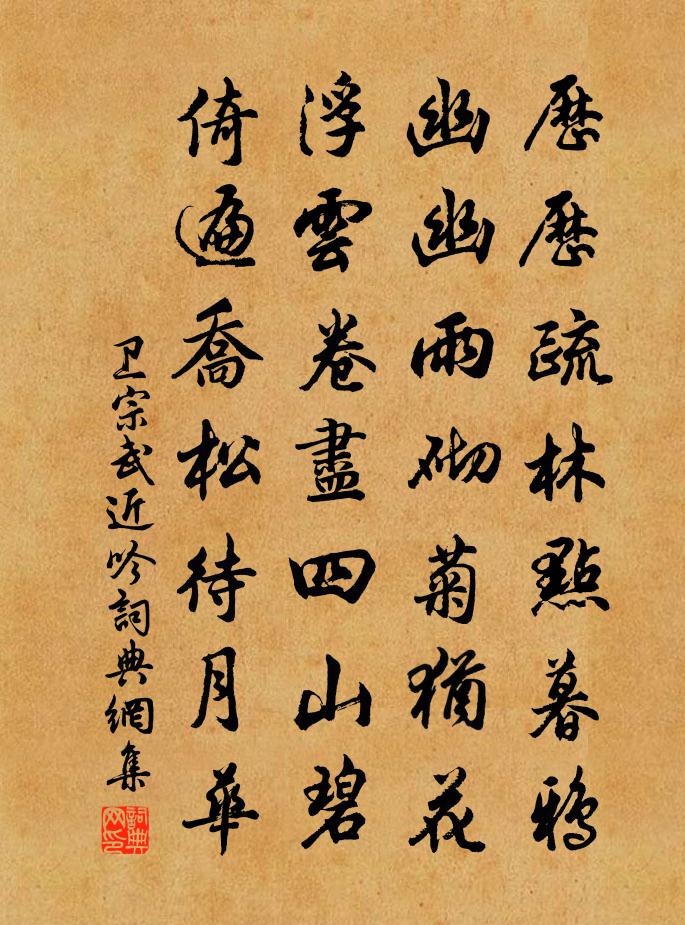 歷歷疏林點暮鴉
幽幽雨砌菊猶花
浮雲卷盡四山碧
倚遍喬松待月華
卫宗武近吟詞典網集
詞典网印